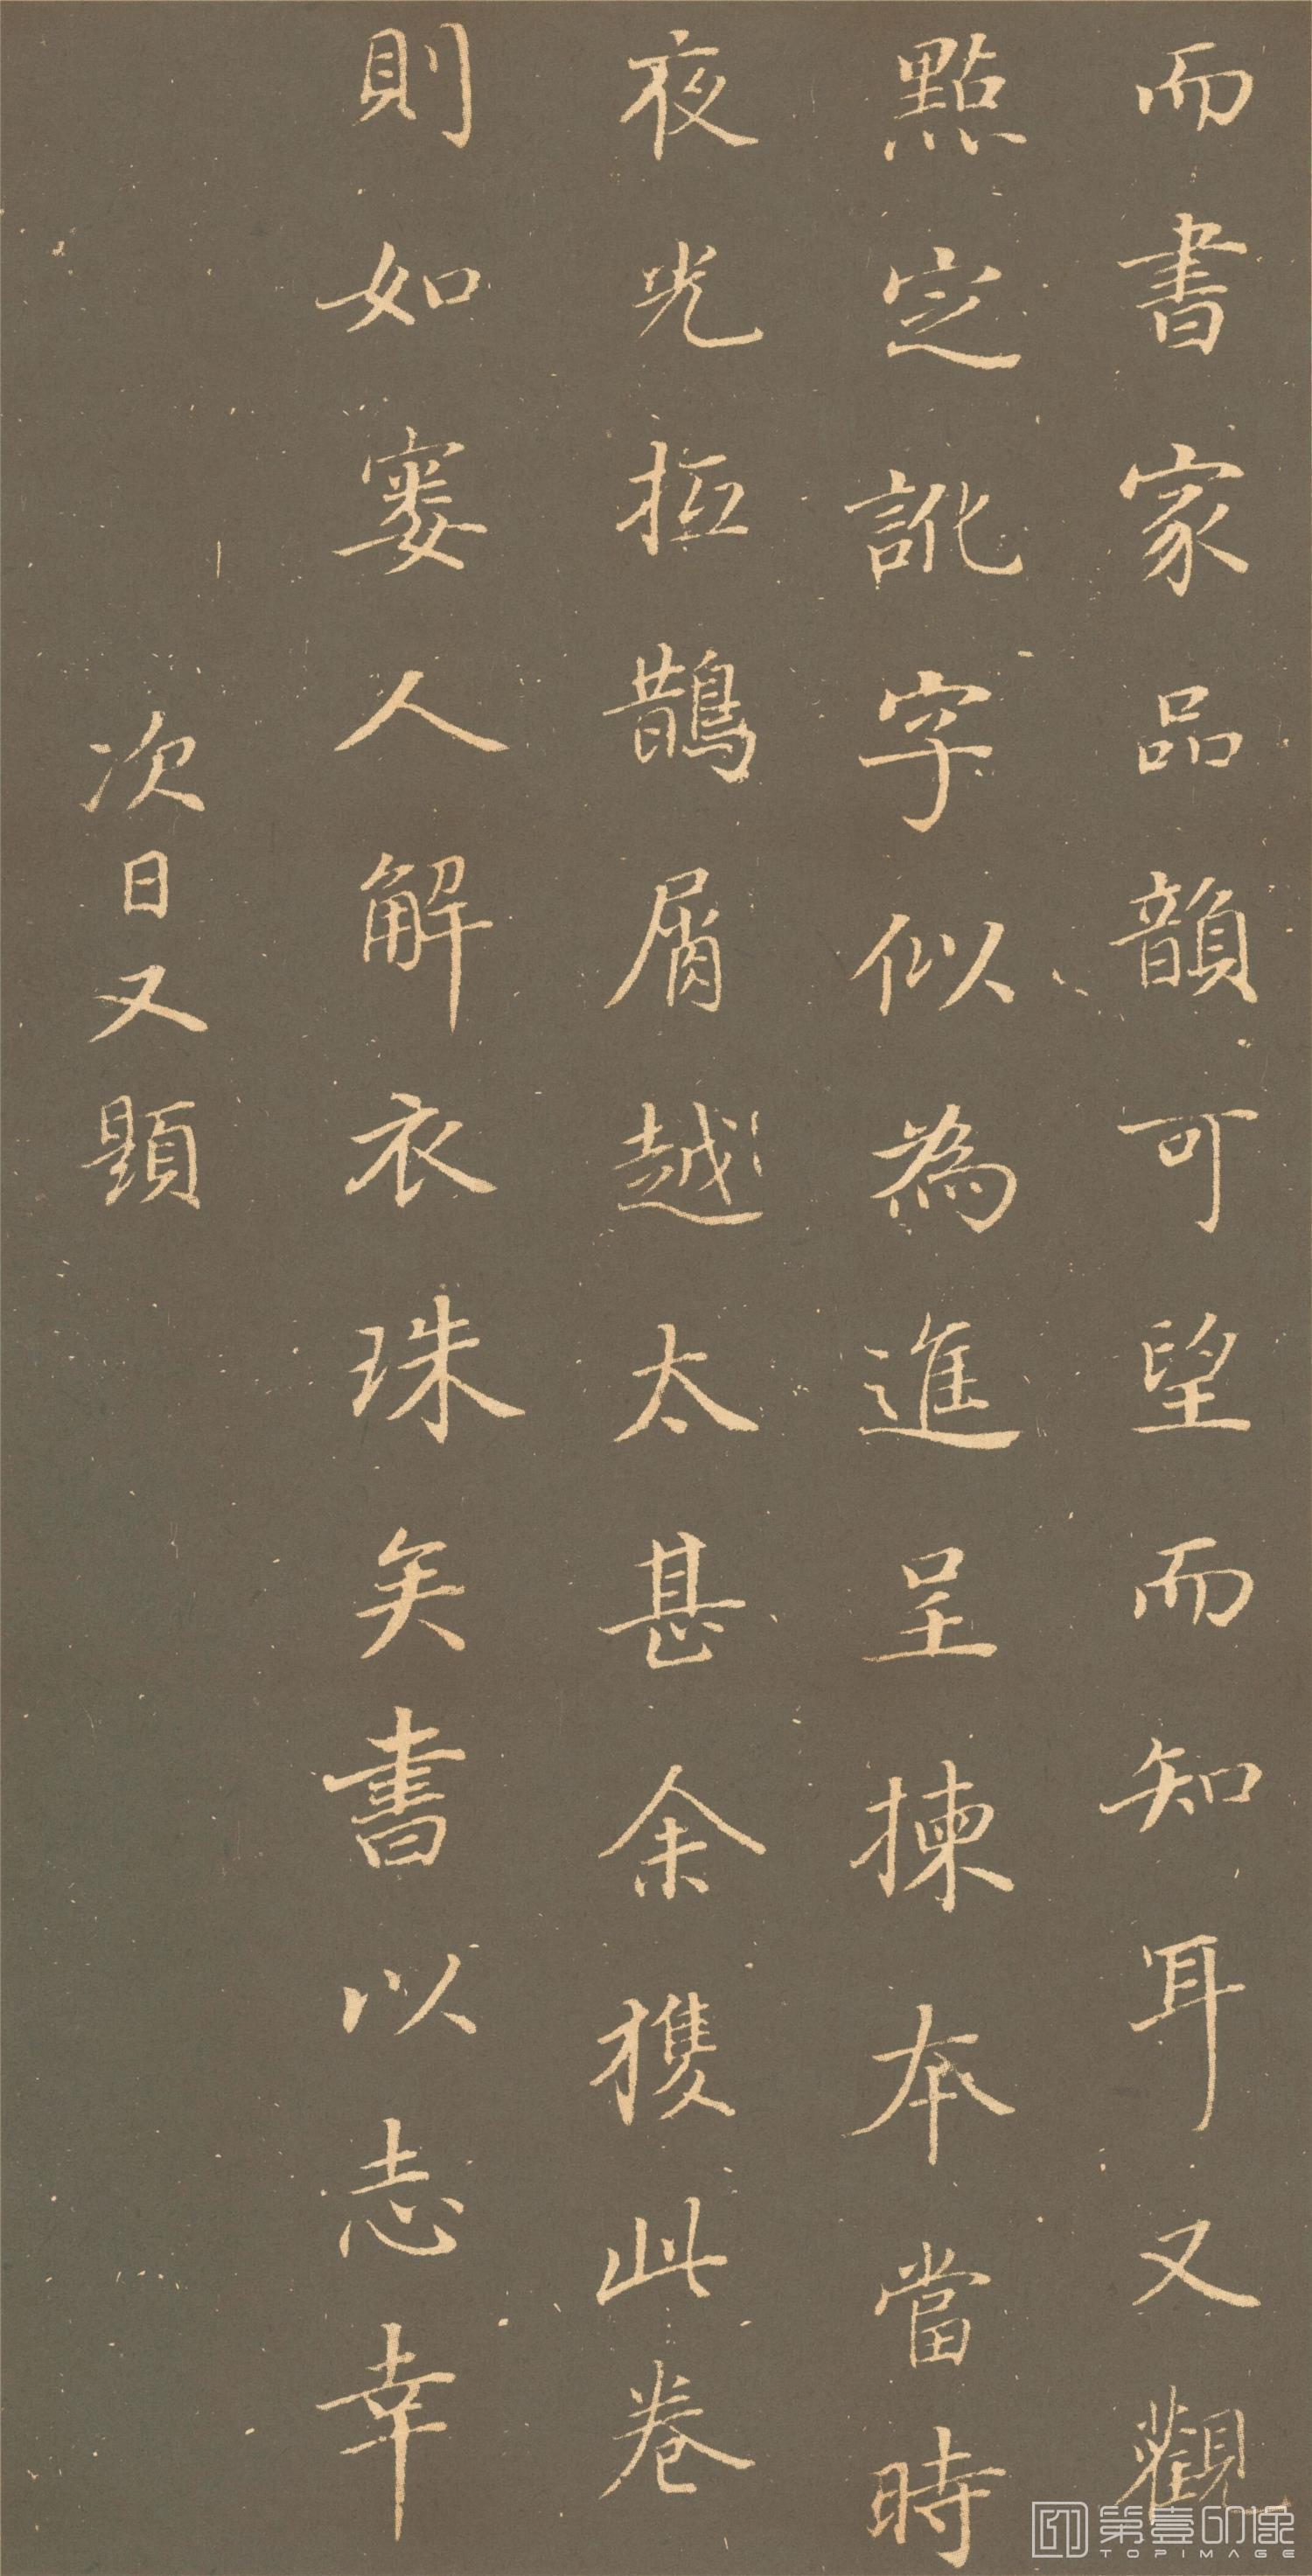 而書家品韻可望而知耳又觀
點定訛字似為進呈揀本當時
夜光抵鵲屑越太甚余獲此卷
則如窶人解衣珠矣書以志幸
次日又題
第壹印像
TOPIMAGE